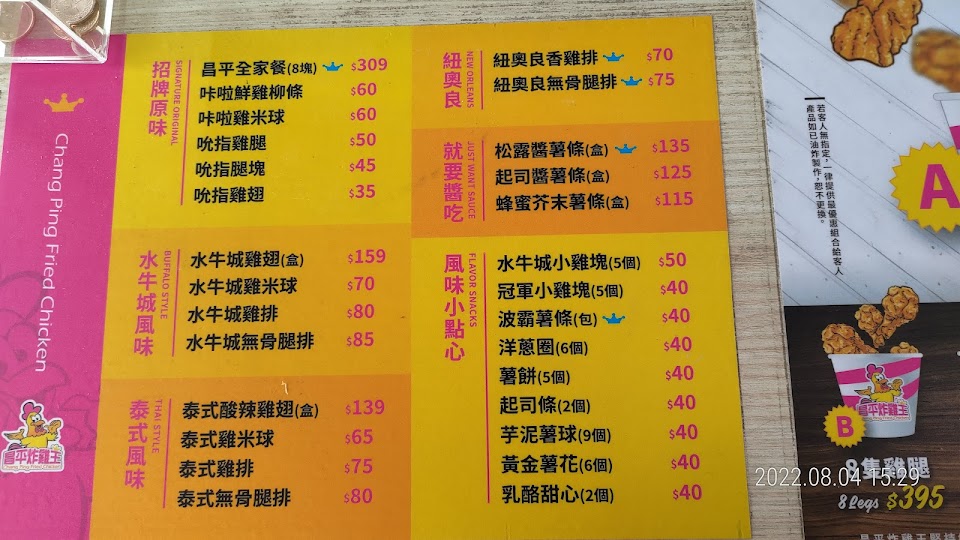 Chang Ping Fried Chicken
昌平炸雞王
招牌原味
SIGNATURE ORIGINAL
昌平全家餐(8塊) $309
咔啦鮮雞柳條 $60
咔啦雞米球 $60
吮指雞腿 $50
吮指腿塊 $45
吮指雞翅 $35
水牛城風味
BUFFALO STYLE
水牛城雞翅(盒) $159
水牛城雞米球 $70
水牛城雞排 $80
水牛城無骨腿排 $85
泰式風味
THAI STYLE
泰式酸辣雞翅(盒) $139
泰式雞米球 $65
泰式雞排 $75
泰式無骨腿排 $80
紐奧良
NEW ORLEANS
紐奧良香雞排 $70
紐奧良無骨腿排 $75
就要醬吃
JUST WANT SAUCE
松露醬薯條(盒) $135
起司醬薯條(盒) $125
蜂蜜芥末薯條(盒) $115
風味小點心
FLAVOR SNACKS
水牛城小雞塊(5個) $50
冠軍小雞塊(5個) $40
波霸薯條(包) $40
洋蔥圈(6個) $40
薯餅(5個) $40
起司條(2個) $40
芋泥薯球(9個) $40
黃金薯花(6個) $40
乳酪甜心(2個) $40
若客人無指定，一律提供最優惠組合給客人
產品如已油炸製作，恕不更換。
A
B
昌平炸雞王
8隻雞腿
8 Legs $395
2022.08.04 15:29